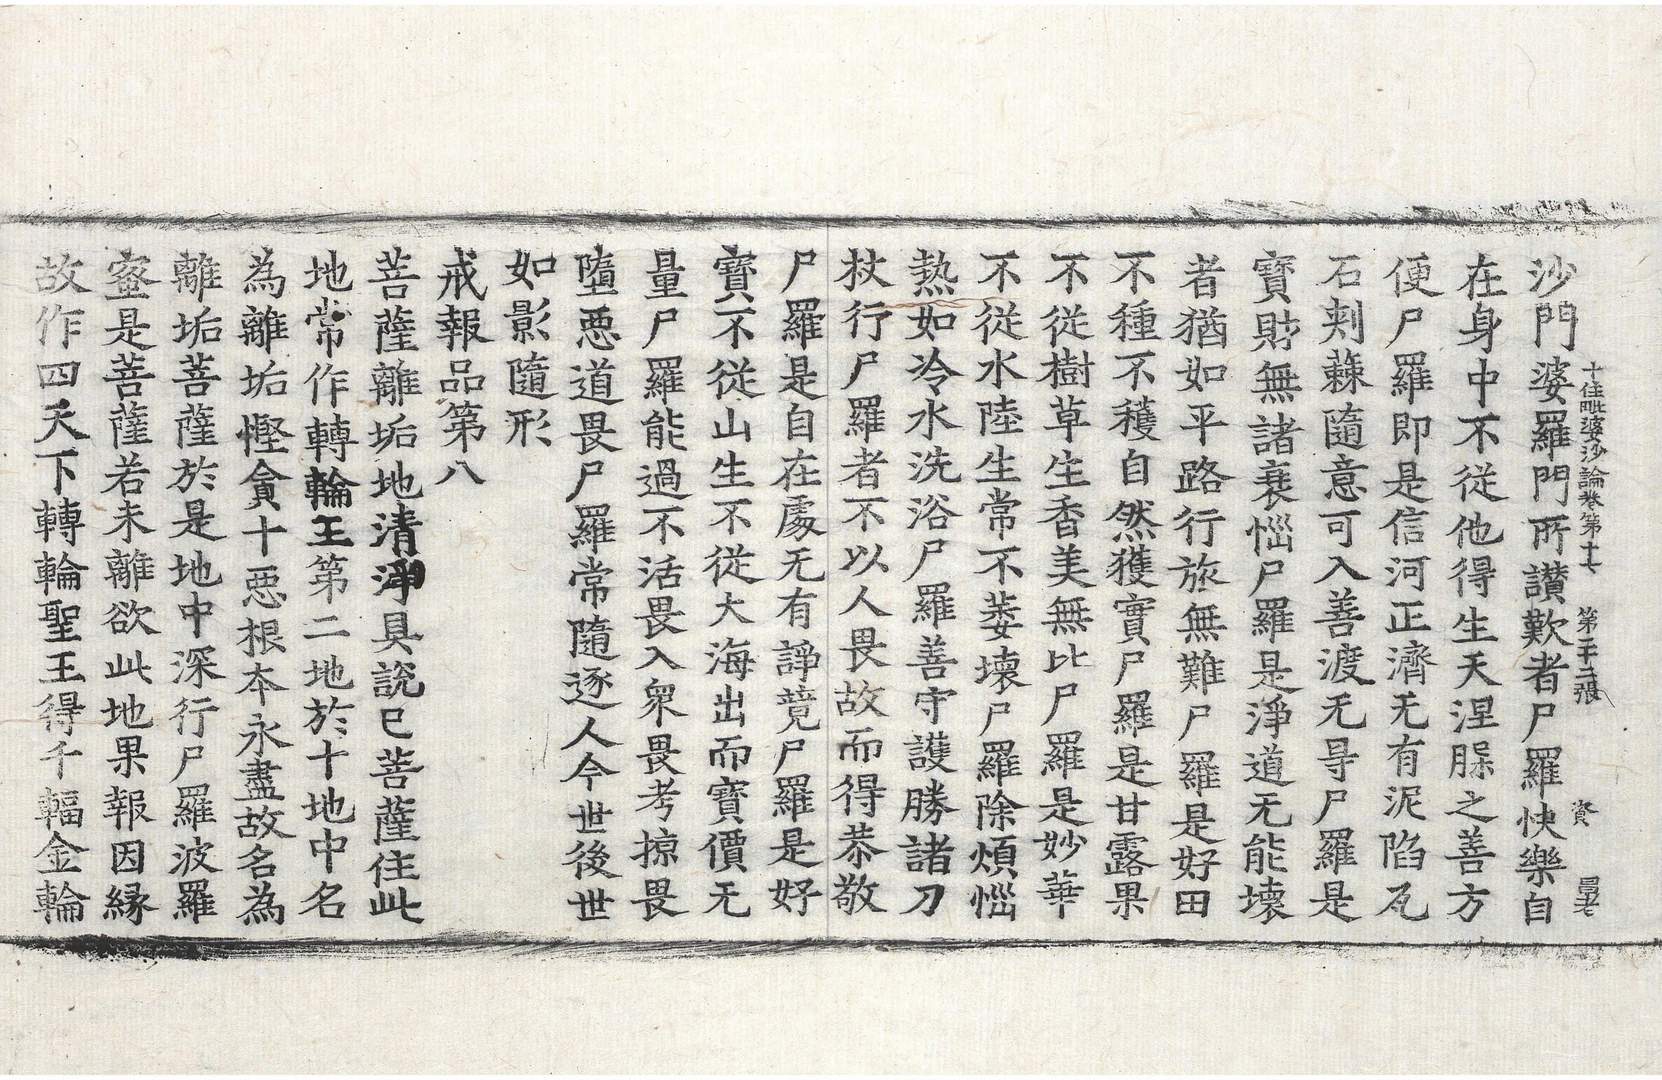 十住毗婆沙論卷第十七 第二十三張 資 冐老
沙門婆羅門所讃歎者尸羅快樂自
在身中不從他得生天涅槃之善方
便尸羅即是信河正濟无有泥陷瓦
石刾蕀隨意可入善渡无㝵尸羅是
寶財無諸衰惱尸羅是淨道无能壞
者猶如平路行旅無難尸羅是好田
不種不穫自然獲實尸羅是甘露果
不從樹草生香美無比尸羅是妙華
不從水陸生常不萎壞尸羅除煩惱
熱如冷水洗浴尸羅善守護勝諸刀
杖行尸羅者不以人畏故而得恭敬
尸羅是自在處无有諍競尸羅是好
寶不從山生不從大海出而寶價无
量尸羅能過不活畏入衆畏考掠畏
墮惡道畏尸羅常隨逐人今世後世
如影隨形
戒報品第八
菩薩離垢地清淨具説已菩薩住此
地常作轉輪王第二地於十地中名
為離垢慳貪十惡根本永盡故名為
離垢菩薩於是地中深行尸羅波羅
蜜是菩薩若未離欲此地果報因縁
故作四天下轉輪聖王得千輻金輪